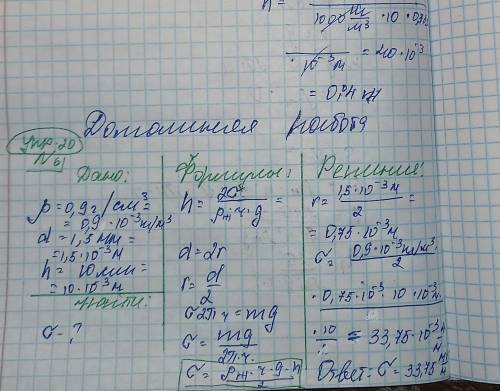 h =
1000 кг/м³ · 10 · 0,
10⁻³ м = 20 · 10⁻³
= 0,04 м
Домашняя работа
Упр. 20
№6
Дано:
ρ = 0,9 г/см³
= 0,9 · 10⁻³ кг/м³
d = 1,5 мм =
= 1,5 · 10⁻³ м
h = 10 мм =
= 10 · 10⁻³ м
Найти:
σ - ?
Формулы:
h = 2σ / ρж · r · g =
d = 2r
r = d/2
σ2πr = mg
σ = mg / 2π · r
σ = ρж · r · g · h / 2
Решение:
r = 1,5 · 10⁻³ м / 2 =
= 0,75 · 10⁻³ м
σ = 0,9 · 10⁻³ кг/м³ / 2
· 0,75 · 10⁻³ · 10 · 10⁻³ м
· 10 = 33,75 · 10⁻³ Н/м
Ответ: σ = 33,75